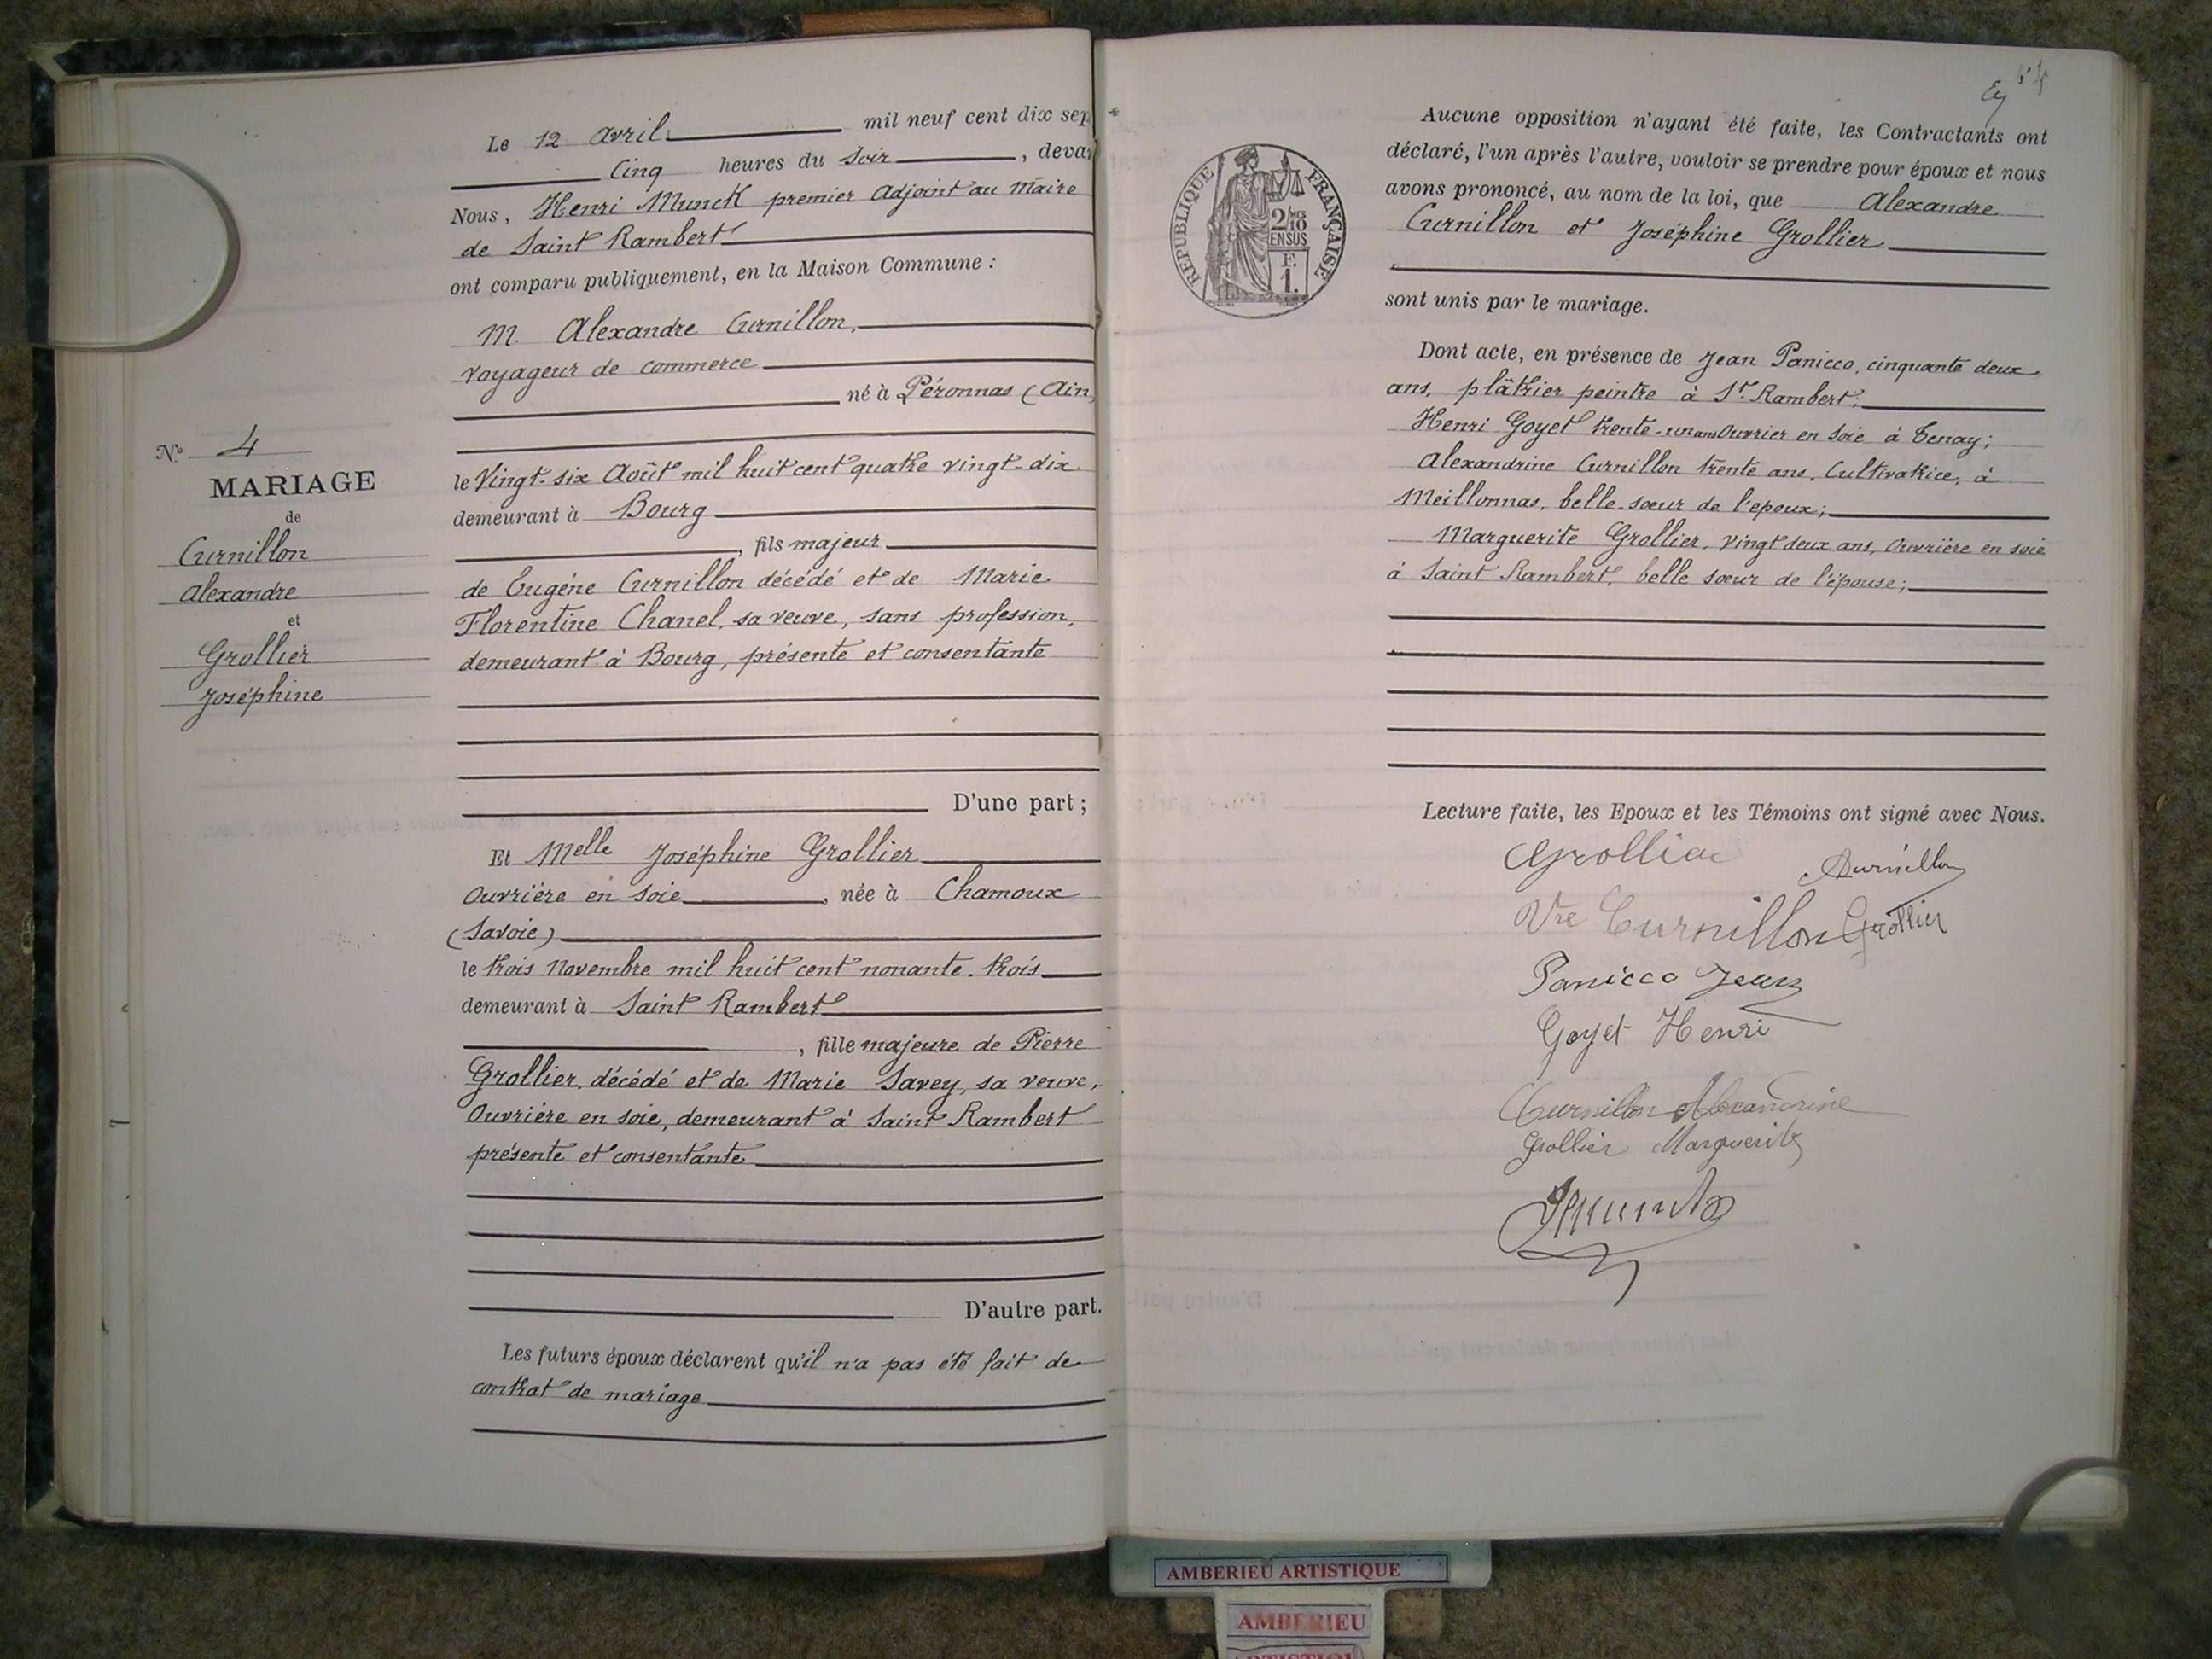 Le 12 avril mil neuf cent dix sep
Cinq heures du Soir, devan
Nous, Henri Munck premier Adjoint au Maire
de Saint Rambert
ont comparu publiquement, en la Maison Commune :
M. Alexandre Curnillon,
voyageur de commerce
né à Péronnas (Ain
le Vingt-six Août mil huit cent quatre vingt-dix
demeurant à Bourg
, fils majeur
de Eugène Curnillon décédé et de Marie
Florentine Chanel, sa veuve, sans profession,
demeurant à Bourg, présente et consentante
D'une part ;
Et Melle Joséphine Grollier
Ouvrière en soie, née à Chamoux
(Savoie)
le trois Novembre mil huit cent nonante-trois
demeurant à Saint Rambert
, fille majeure de Pierre
Grollier, décédé et de Marie Savey, sa veuve,
Ouvrière en soie, demeurant à Saint Rambert
présente et consentante
D'autre part.
Les futurs époux déclarent qu'il n'a pas été fait de
contrat de mariage
N° 4
MARIAGE
de
Curnillon
Alexandre
et
Grollier
Joséphine
REPUBLIQUE FRANÇAISE
2/10 MES
EN SUS
F.
1.
Aucune opposition n'ayant été faite, les Contractants ont
déclaré, l'un après l'autre, vouloir se prendre pour époux et nous
avons prononcé, au nom de la loi, que Alexandre
Curnillon et Joséphine Grollier
sont unis par le mariage.
Dont acte, en présence de Jean Panicco, cinquante deux
ans, plâtrier peintre à St. Rambert;
Henri Goyet trente-un ans Ouvrier en soie à Tenay;
Alexandrine Curnillon trente ans, Cultivatrice, à
Meillonnas, belle-sœur de l'epoux;
Marguerite Grollier, vingt deux ans, Ouvrière en soie
à Saint Rambert, belle sœur de l'épouse;
Lecture faite, les Epoux et les Témoins ont signé avec Nous.
Curnillon
Vve Curnillon Grollier
Panicco Jean
Goyet Henri
Curnillon Alexandrine
Grollier Marguerite
AMBERIEU ARTISTIQUE
AMBERIEU